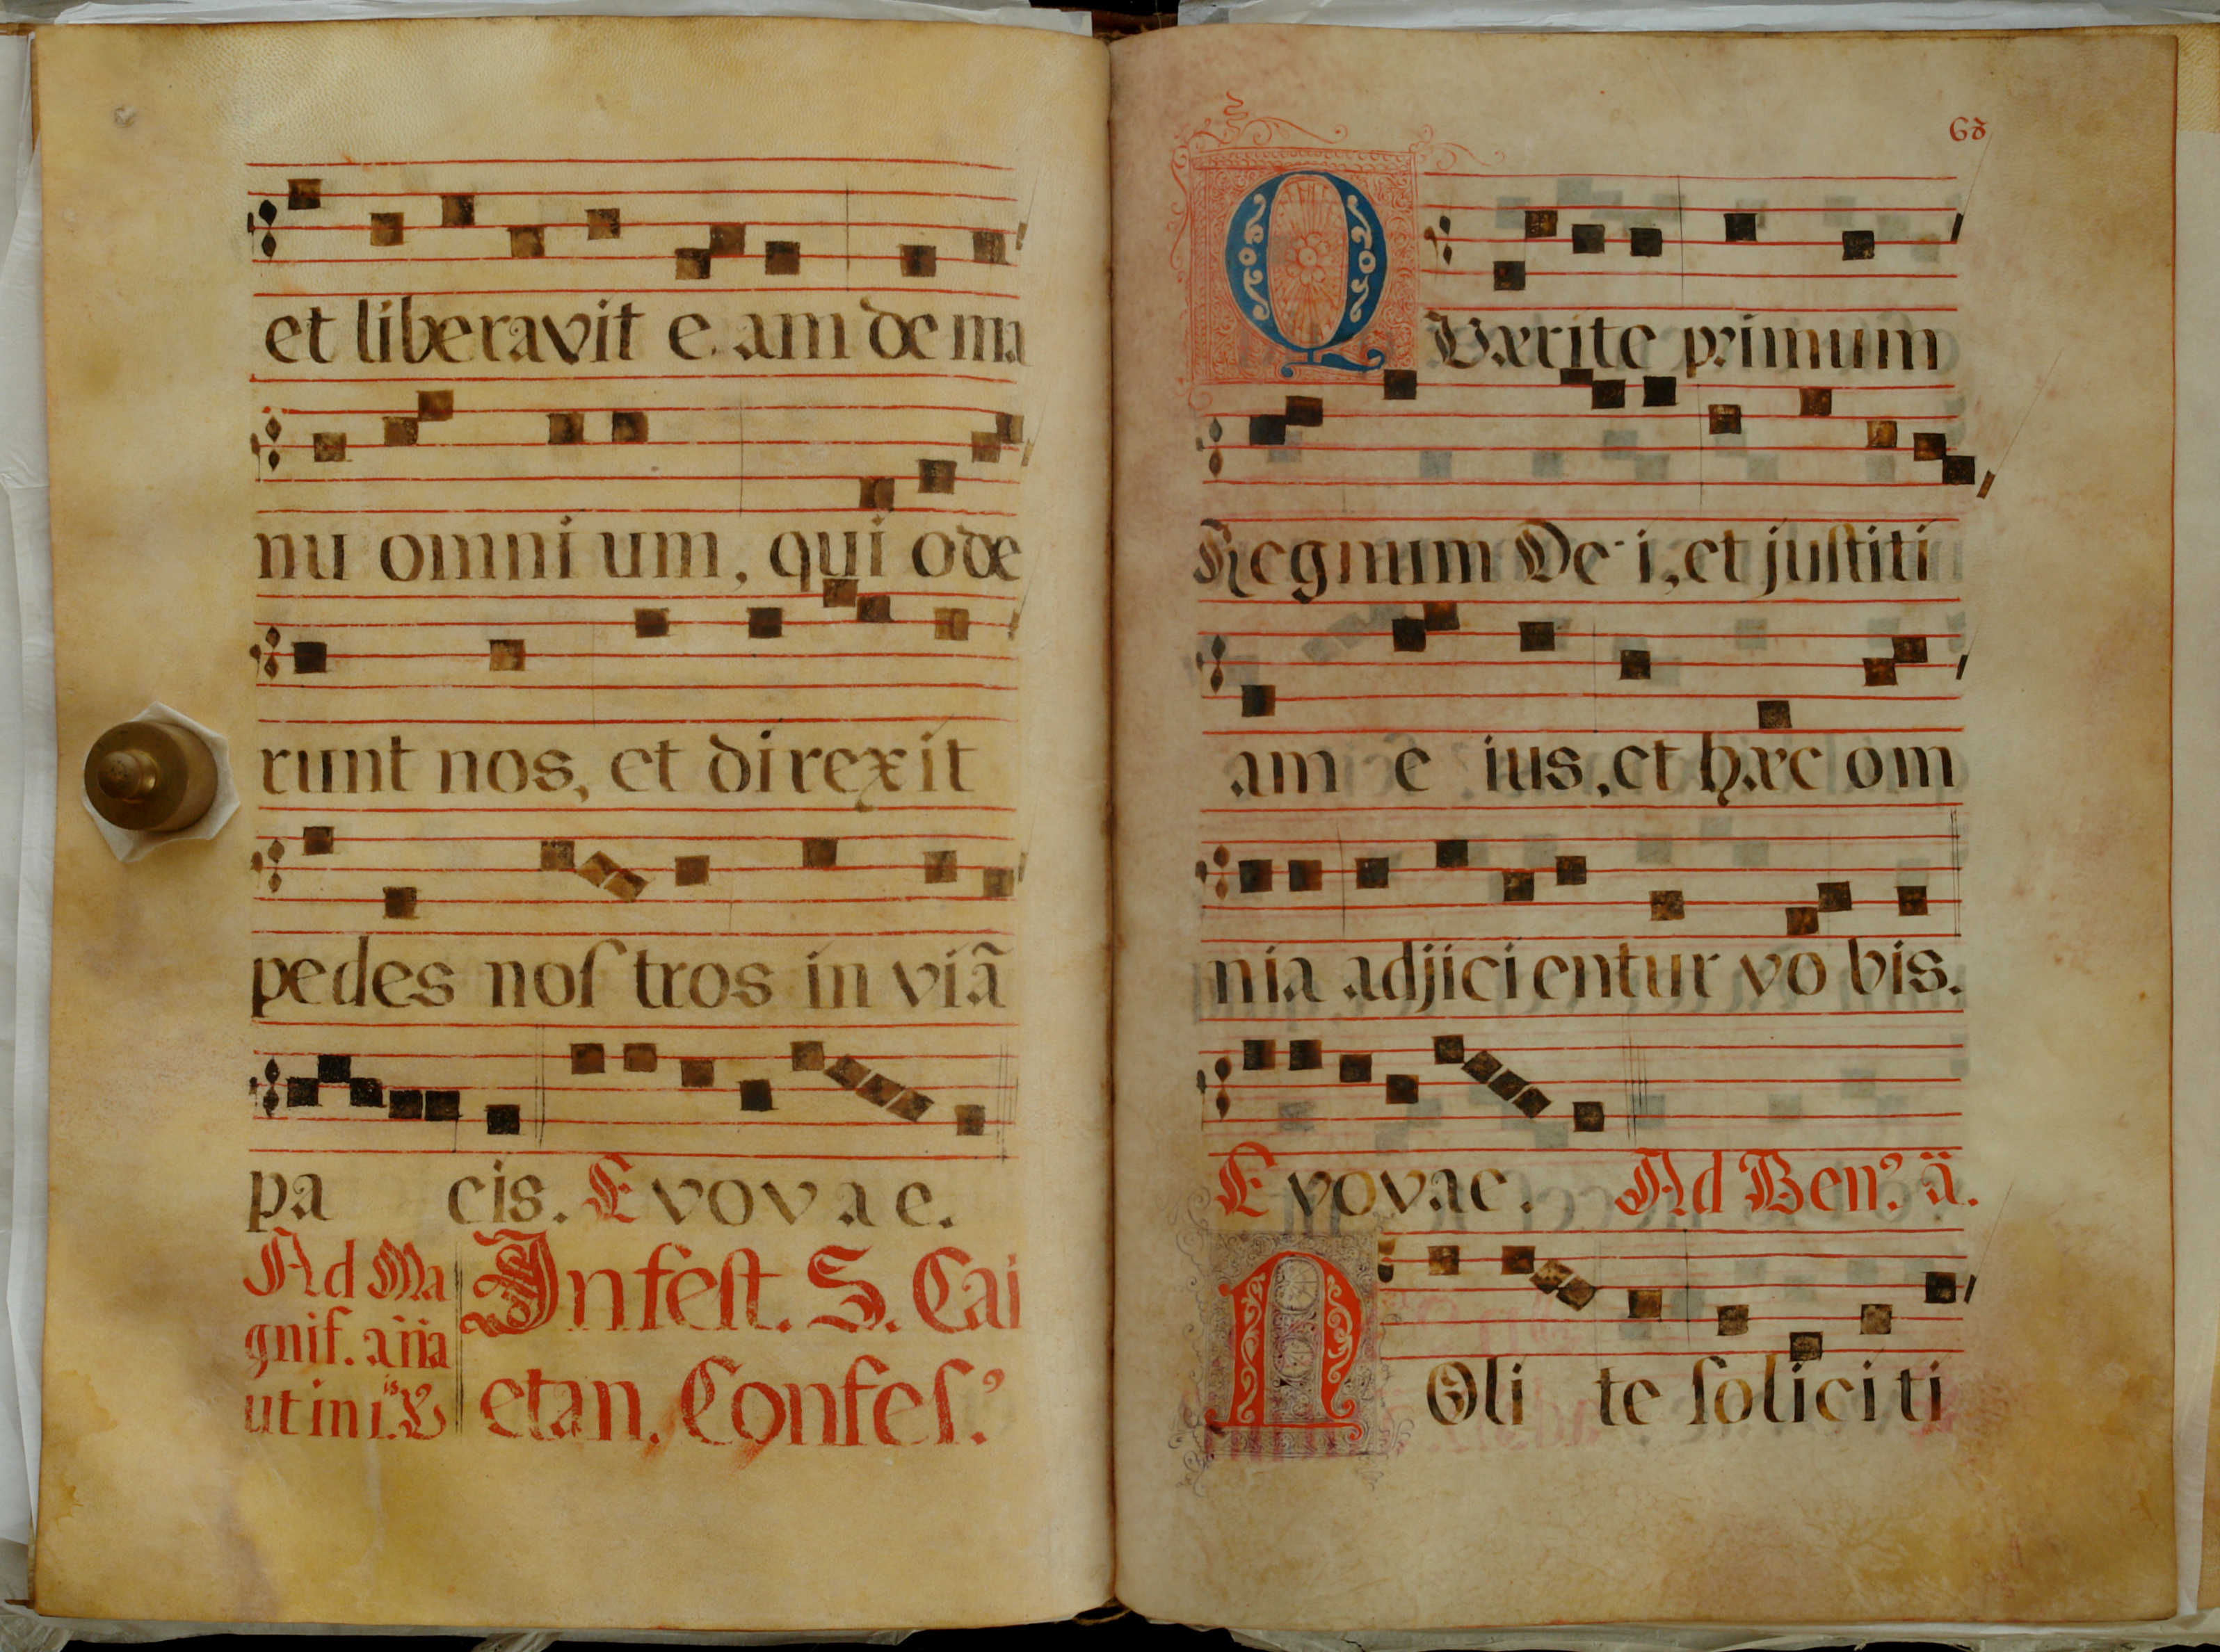 et liberavit e am de ma
nu omni um, qui ode
runt nos, et direxit
pedes nos tros in viã
pa cis. E vovae.
Ad Ma
gnif. aña
ut in i.is V
In fest. S. Cai
etan. Confes.
68
Q Værite primum
Regnum De-i, et justiti
am e ius, et hæc om
nia adjicientur vo bis.
E vovae. Ad Ben.º ä.
N Oli te soliciti